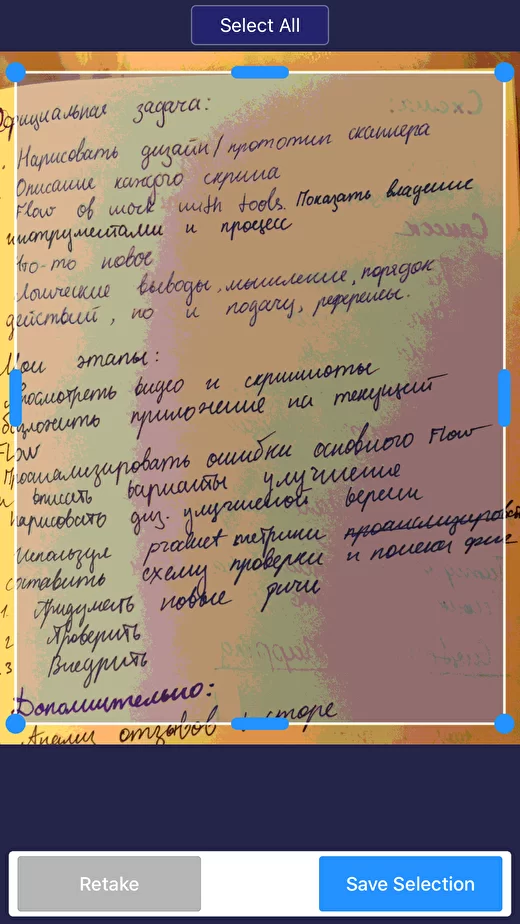 Select All
Официальная задача:
Нарисовать дизайн/прототип сканнера
Описание каждого скрина
Flow of work with tools. Показать владение
инструментами и процесс
Что-то новое
Логические выводы, мышление, порядок
действий, но и подачу, референсы.
Мои этапы:
Просмотреть видео и скриншоты
приложение на текущей
Flow
Проанализировать ошибки основного Flow
описать варианты улучшение
нарисовать диз. улучшеной версии
Используя product метрики проанализировать
составить схему проверки и поиска фич
1. Придумать новые фичи
2. Проверить
3. Внедрить
Дополнительно:
Анализ отзывов в сторе
Схема:
Список
Retake
Save Selection